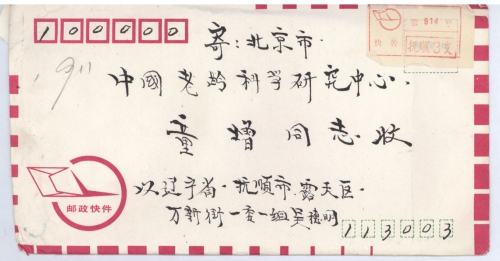 100000
寄:北京市.
中國老龄科学研究中心.
童增同志收
以辽宁省.抚順市.露天区.
万新街一委一组吴德明
113003
邮政快件
911
914